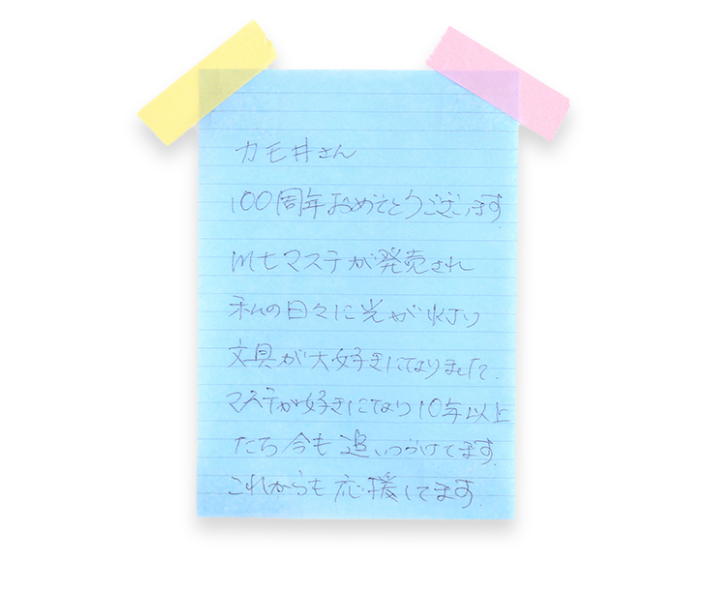 カモ井さん
100周年おめでとうございます
mtマステが発売され
私の日々に光が灯り
文具が大好きになりました.
マステが好きになり10年以上
たち今も追いつづけてます.
これからも応援してます.